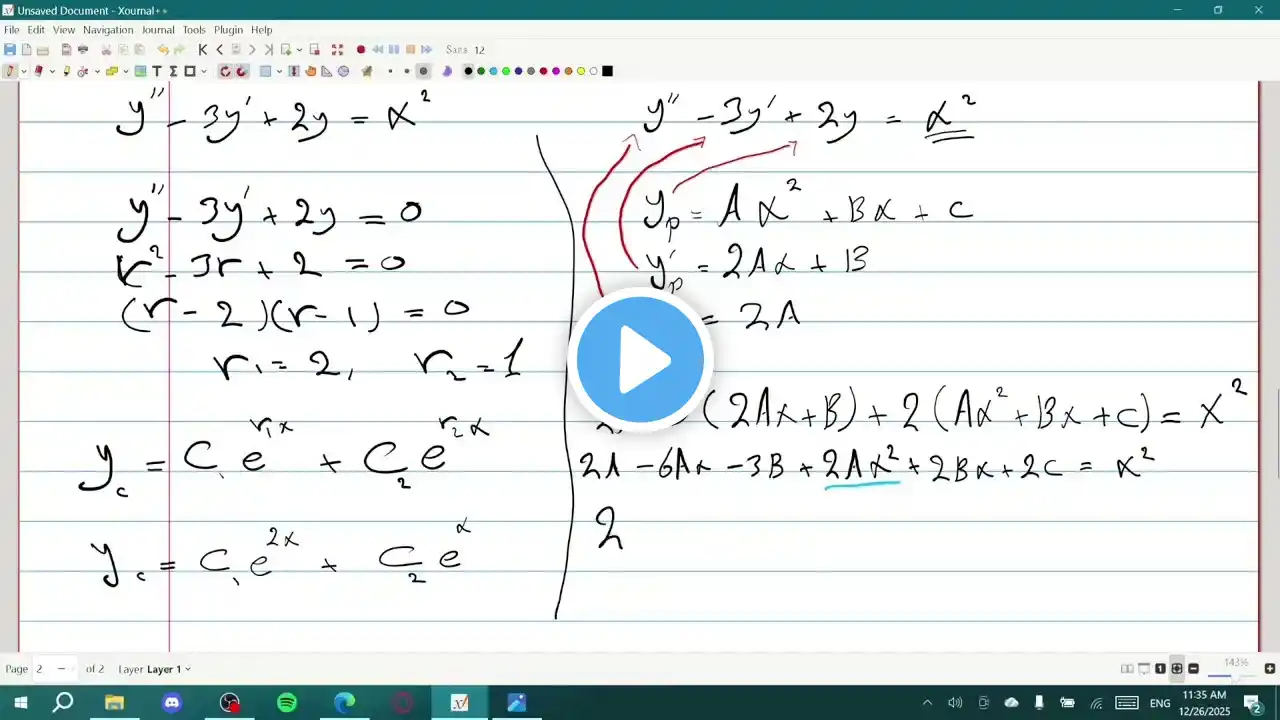 Unsaved Document - Xournal++
File Edit View Navigation Journal Tools Plugin Help
Sans 12
y'' - 3y' + 2y = x²
y'' - 3y' + 2y = 0
r² - 3r + 2 = 0
(r - 2)(r - 1) = 0
r₁ = 2, r₂ = 1
y_c = C₁ e^{r₁x} + C₂ e^{r₂x}
y_c = C₁ e^{2x} + C₂ e^{x}
y'' - 3y' + 2y = x²
y_p = Ax² + Bx + C
y'_p = 2Ax + B
= 2A
(2Ax + B) + 2(Ax² + Bx + C) = x²
2A - 6Ax - 3B + 2Ax² + 2Bx + 2C = x²
2
Page 2 of 2 Layer Layer 1
143%
ENG
11:35 AM
12/26/2025
2